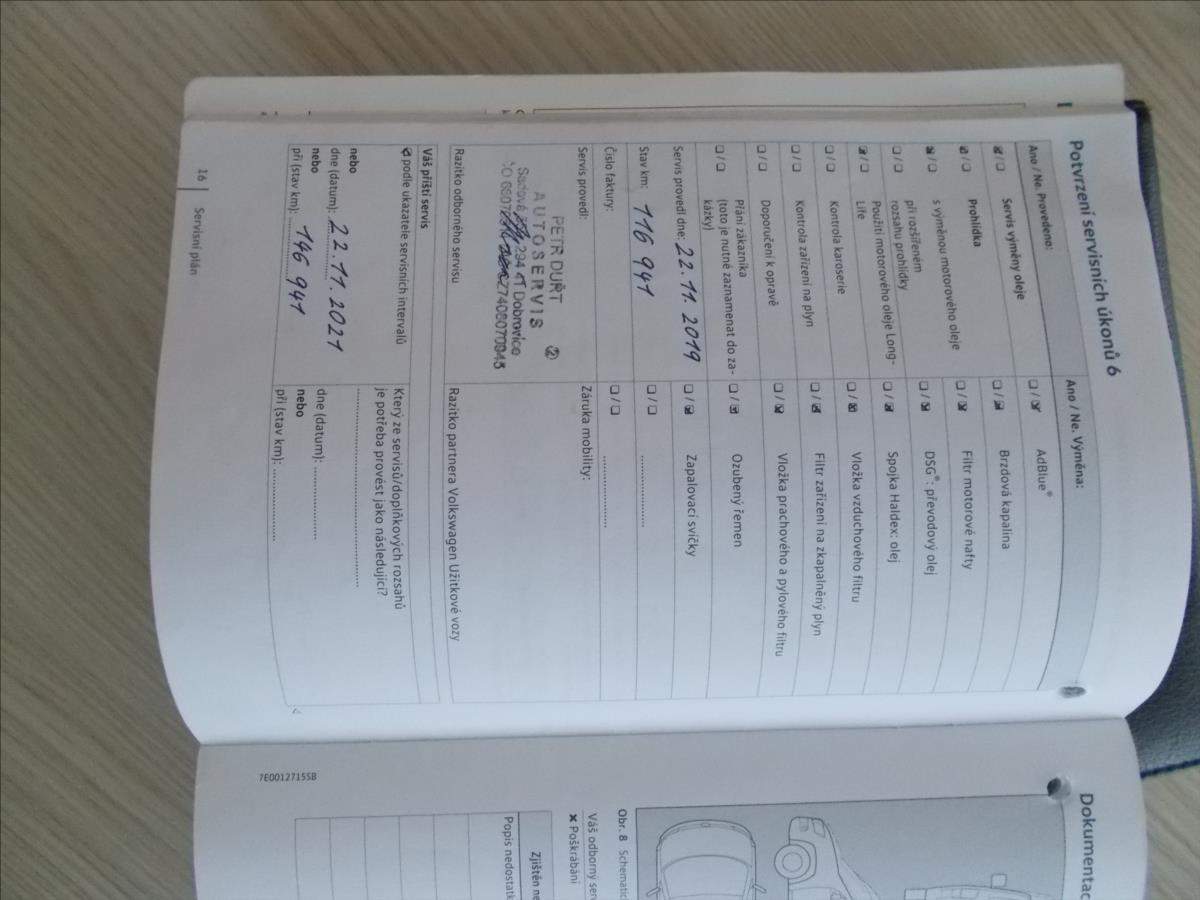 Potvrzení servisních úkonů 6
Ano / Ne. Provedeno:
☑ / ❏ Servis výměny oleje
☑ / ❏ Prohlídka
s výměnou motorového oleje
☑ / ❏ při rozšířeném
rozsahu prohlídky
❏ / ❏ Použití motorového oleje Long-
Life
☑ / ❏ Kontrola karoserie
❏ / ❏ Kontrola zařízení na plyn
❏ / ❏ Doporučení k opravě
❏ / ❏ Přání zákazníka
(toto je nutné zaznamenat do za-
kázky)
❏ / ❏
Servis provedl dne: 22.11.2019
Stav km: 116 941
Číslo faktury:
Servis provedl:
PETR DUŘT
AUTOSERVIS ②
294 41 Dobrovice
Razítko odborného servisu
Ano / Ne. Výměna:
❏ / ☑ AdBlue®
❏ / ☑ Brzdová kapalina
❏ / ☑ Filtr motorové nafty
❏ / ☑ DSG®: převodový olej
❏ / ☑ Spojka Haldex: olej
❏ / ☑ Vložka vzduchového filtru
❏ / ☑ Filtr zařízení na zkapalněný plyn
❏ / ☑ Vložka prachového a pylového filtru
❏ / ☑ Ozubený řemen
❏ / ☑ Zapalovací svíčky
❏ / ❏ ....................
❏ / ❏ ....................
Záruka mobility:
Razítko partnera Volkswagen Užitkové vozy
Váš příští servis
☑ podle ukazatele servisních intervalů
nebo
dne (datum): 22.11.2021
nebo
při (stav km): 146 941
Který ze servisů/doplňkových rozsahů
je potřeba provést jako následující?
..................................................
dne (datum): ....................
nebo
při (stav km): ....................
16 Servisní plán
Dokumentac
Obr. 8 Schematic
Váš odborný ser
✘ Poškrábání
Zjištěn ne
Popis nedostatk
7E0012715SB